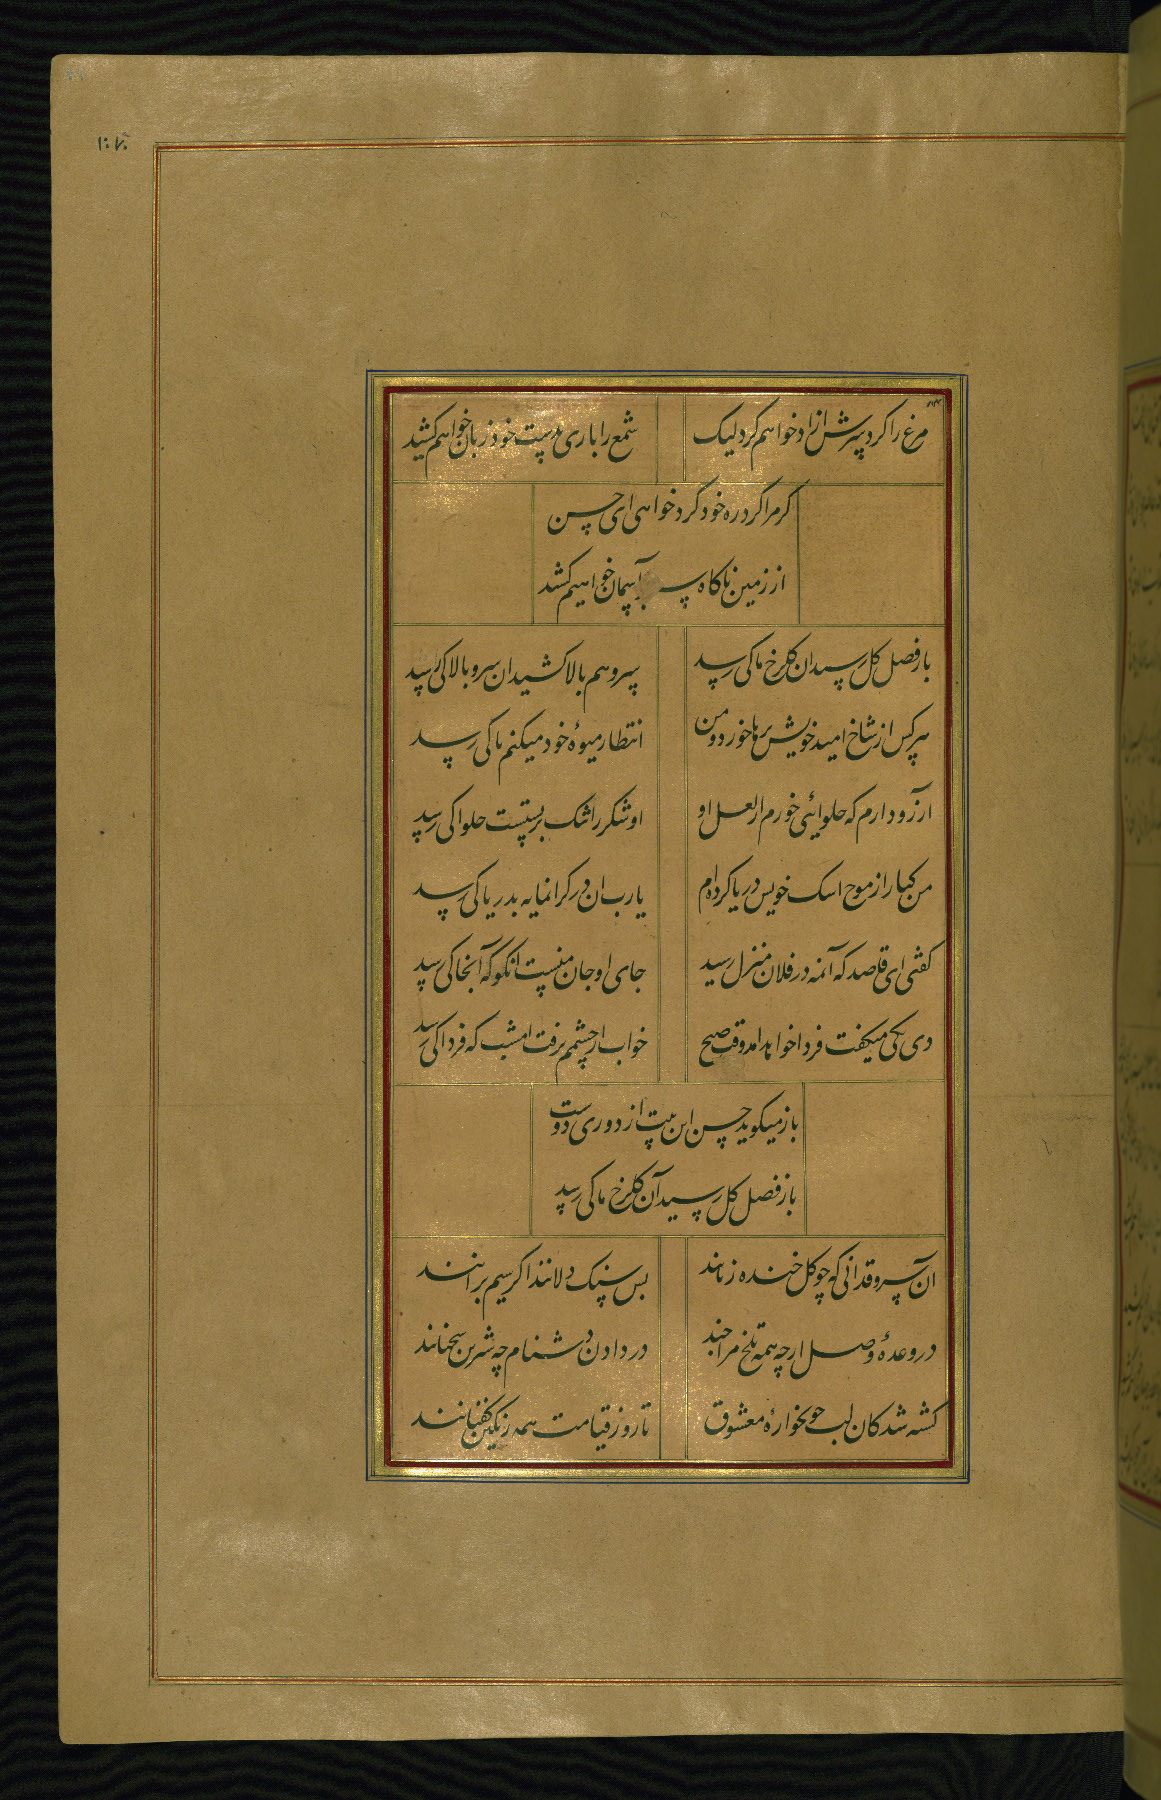 مرغ را کرد سرش ازاد خواهم کرد لیک
شمع را باری بدست خود زبان خواهم کشید
کرمرا کرد ره خود کرد خواهی ای حسن
از زمین ناکاه بآسمان خواهیم کشد
باز فصل کل رسید ان کلرخ ما کی رسد
سرو هم بالا کشید ان سرو بالا کی رسد
هر کس از شاخ امید خویش برها خورد و من
انتظار میوهٔ خود میکنم تا کی رسد
ارزو دارم که حلوائی خورم از لعل او
او شکر را شک بربستست حلوا کی رسد
من کنار از موج اسک خویس دریا کرده ام
یارب ان در کرانمایه بدریا کی رسد
کفتی ای قاصد که آنمه در فلان منزل رسید
جای او جان منست انکو که آنجا کی رسد
دی یکی میکفت فردا خواهد امد وقت صبح
خواب از چشمم برفت امشب که فردا کی رسد
باز میکوید حسن این بیت از دوری دوست
باز فصل کل رسید آن کلرخ ما کی رسد
ان سرو قدانی که چو کل خنده زنانند
بس سنک دلانند اکر سیم برانند
در وعدهٔ وصل ارچه همه تلخ مزاجند
در دادن دشنام چه شرین سخنانند
کشته شدکان لب خونخوارهٔ معشوق
تا روز قیامت همه رنکین کفنانند